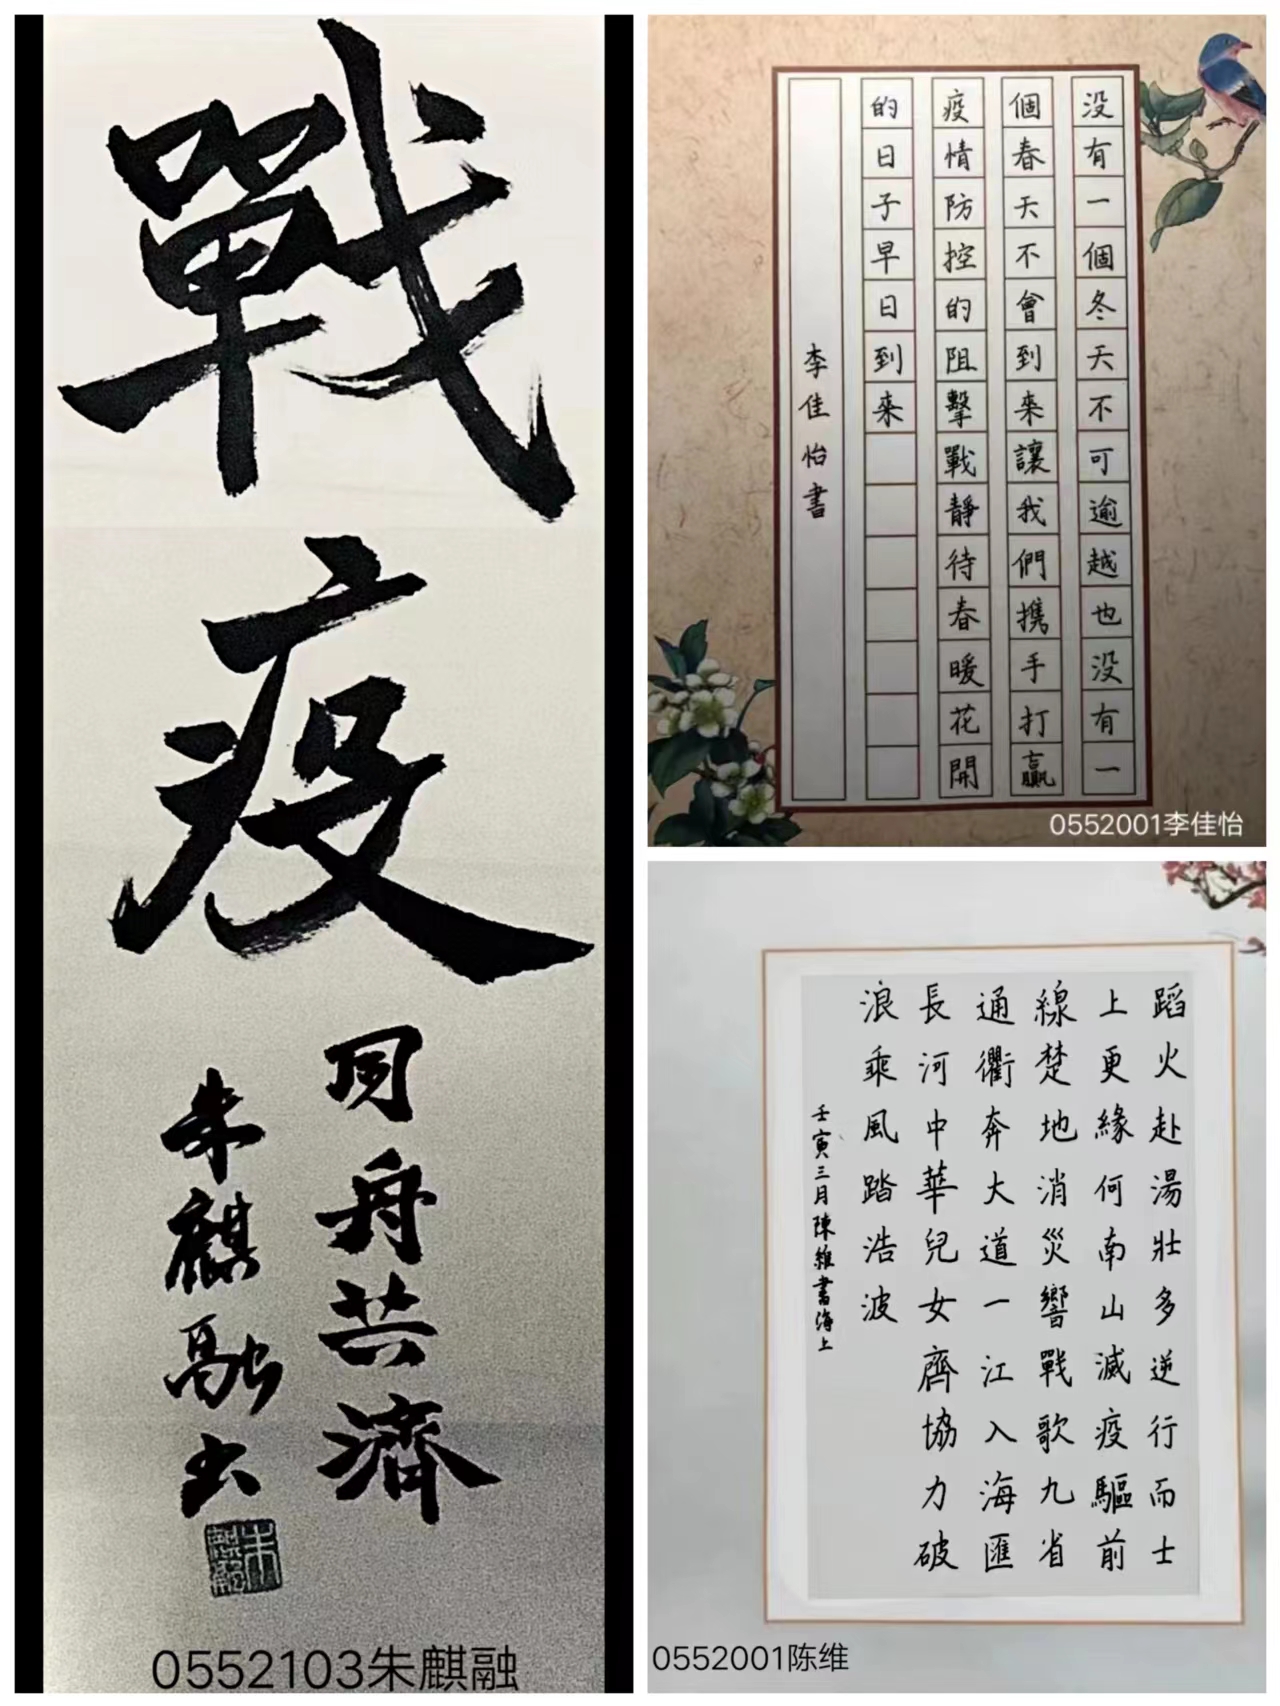 戰疫
同舟共濟
朱麒融书
0552103朱麒融
没有一個冬天不可逾越也没有一
個春天不會到來讓我們携手打贏
疫情防控的阻擊戰靜待春暖花開
的日子早日到來
李佳怡書
0552001李佳怡
蹈火赴湯壯多逆行而士
上更緣何南山滅疫驅前
線楚地消災響戰歌九省
通衢奔大道一江入海匯
長河中華兒女齊協力破
浪乘風踏浩波
壬寅三月陳維書海上
0552001陈维